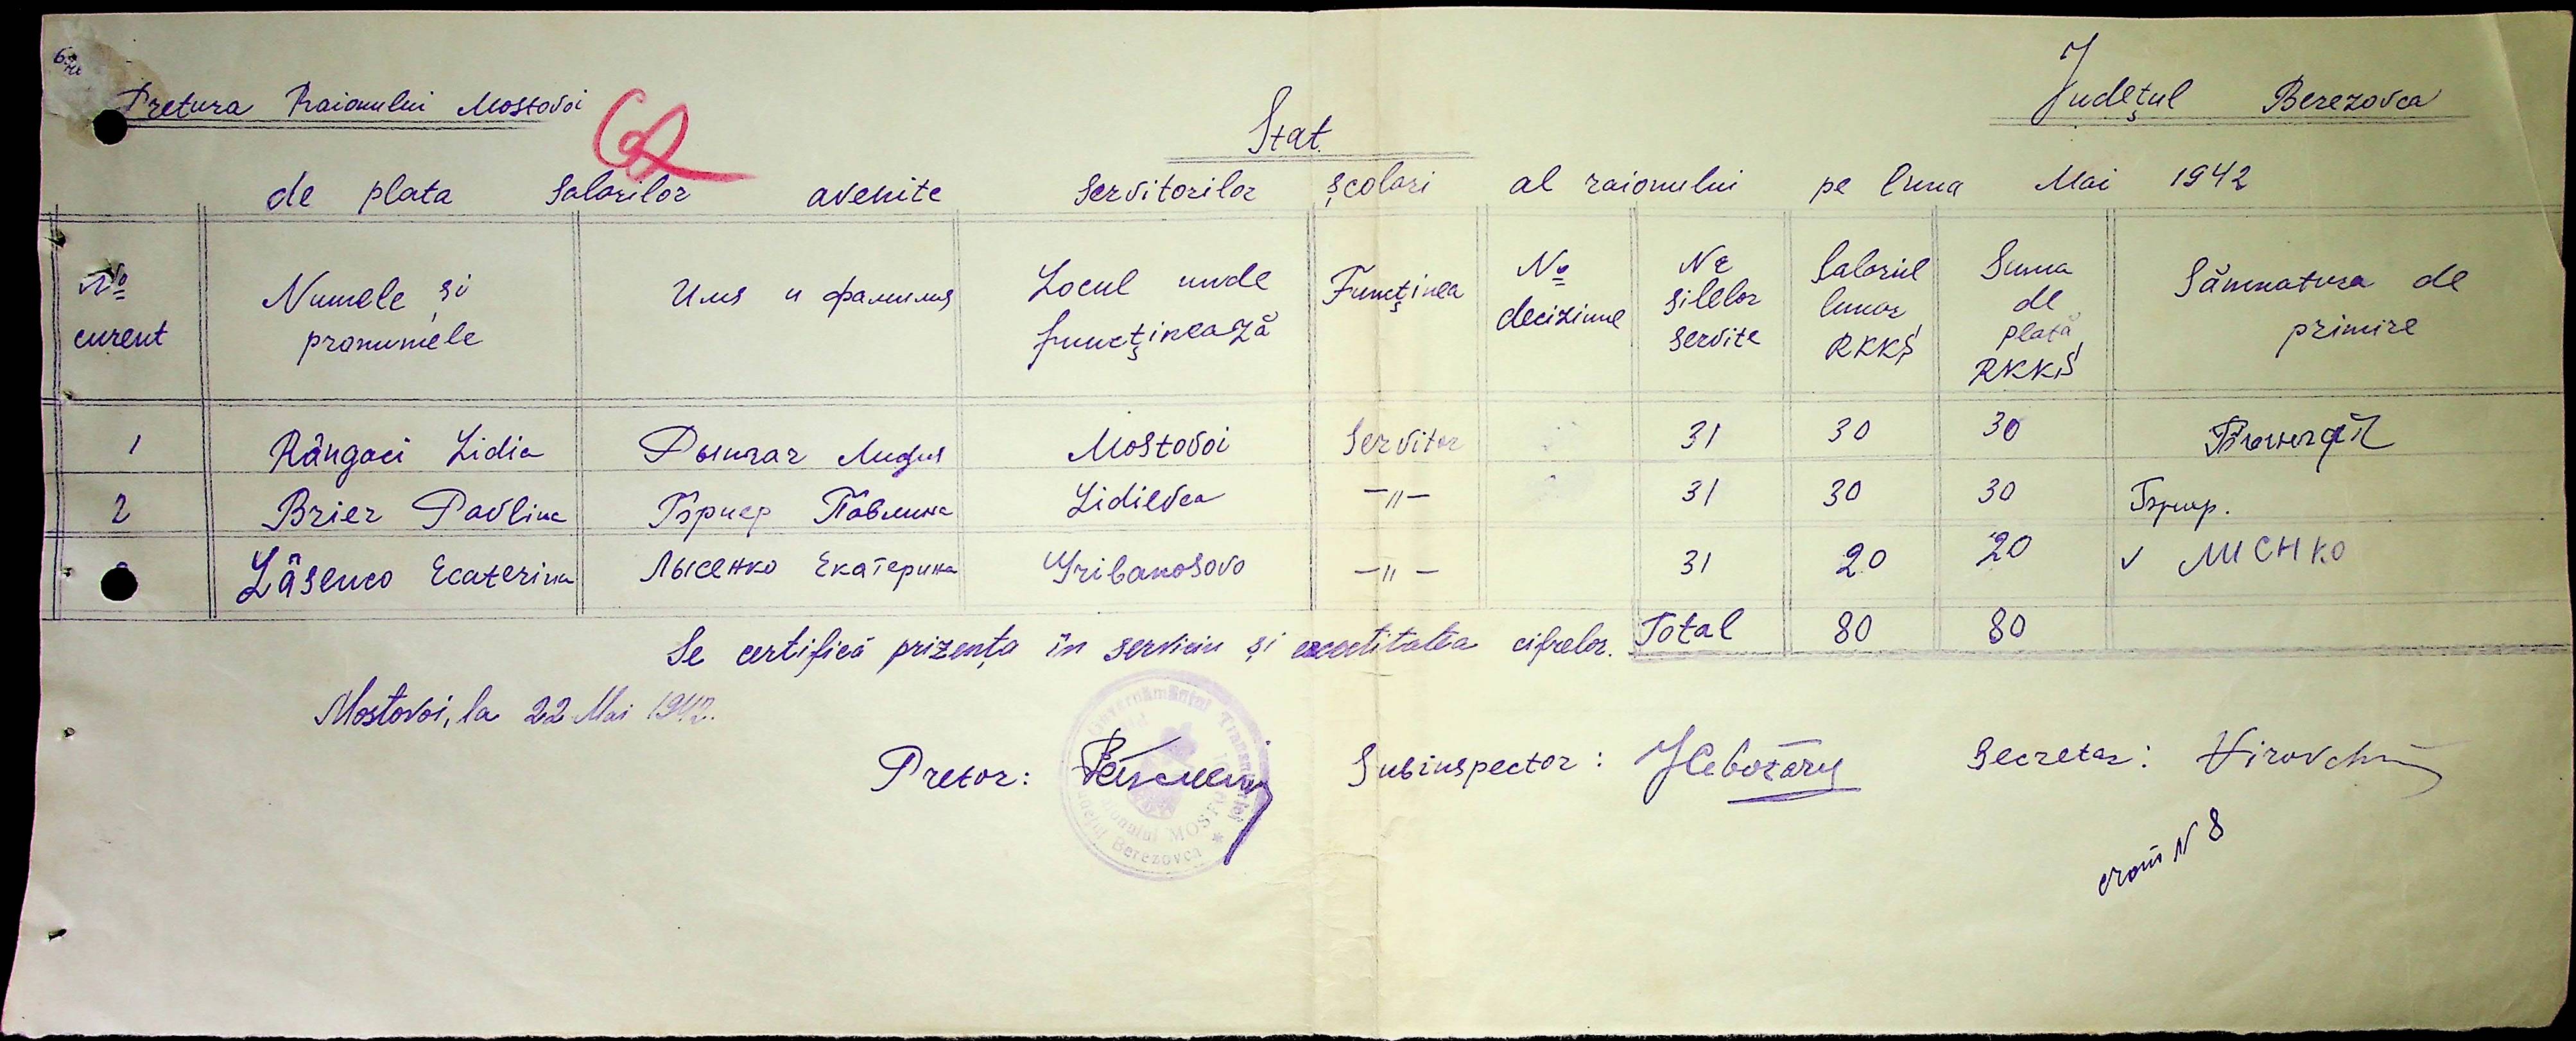 Pretura Raionului Mostovoi
Județul Berezovca
62
Stat
de plata salarilor avenite servitorilor școlari al raionului pe luna Mai 1942
№ curent
Numele și pronumele
Имя и фамилия
Locul unde funcținează
Funcținea
№ deciziune
Nr silelor servite
Salariul lunar RKKS
Suma de plată RKKS
Sămnatura de primire
1 Rângaci Lidia Рынгач Лидия Mostovoi Servitor 31 30 30
2 Brier Pavlina Бриер Павлина Lidievca —〃— 31 30 30 Бриер.
Lâsenco Ecaterina Лысенко Екатерина Gribanosovo —〃— 31 20 20 v
Total 80 80
Se certifică prizența în serviciu și exactitatea cifrelor.
Mostovoi, la 22 Mai 1942.
Pretor:
Subinspector:
Secretar:
Guvernământul Transnistriei
Raionul MOSTOVOI
Județul Berezovca
N 8